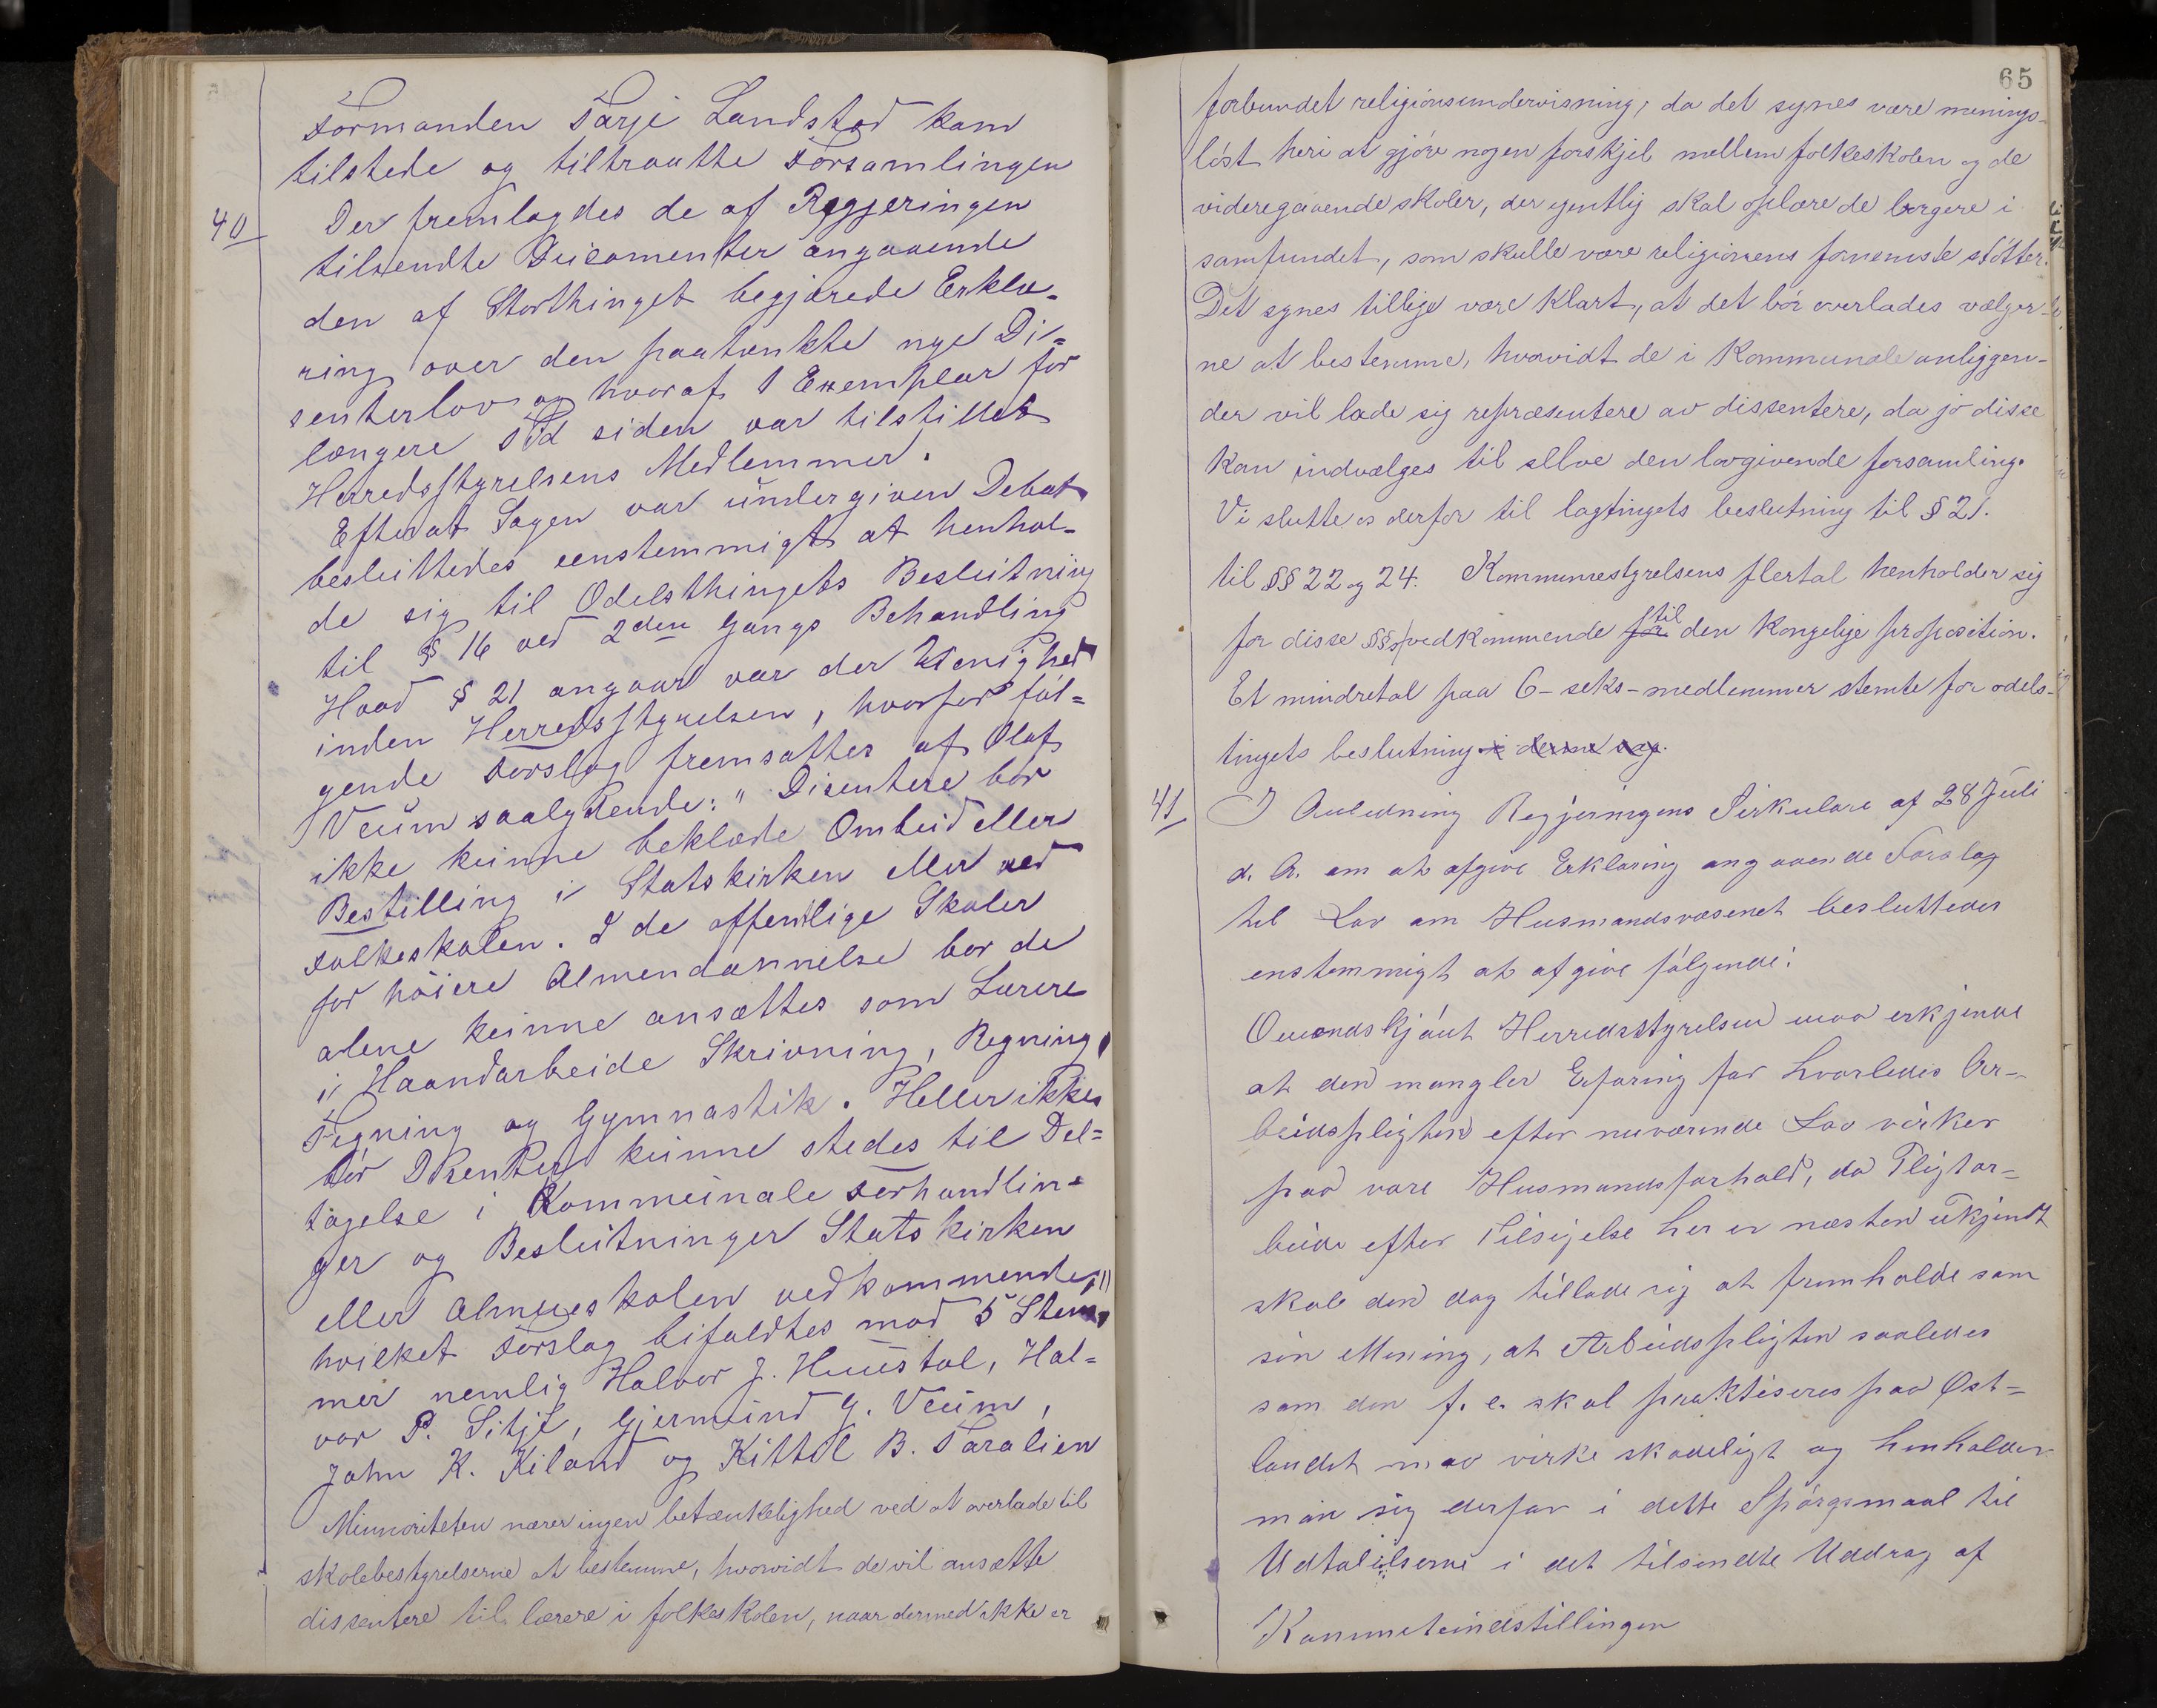 Formanden Tarje Landstad kom
tilstede og tiltraatte Forsamlingen
40 Der fremlagdes de af Regjeringen
tilsendte Ducomenter angaaende
den af Storthinget begjærede Erklæ-
ring over den paatænkte nye Di-
senterlov og hvoraf 1 Exemplar for
længere Tid siden var tilstillet
Herredsstyrelsens Medlemmer.
Efterat Sagen var undergiven Debat
besluttedes eenstemmigt at henhol-
de sig til Odelsthingets Beslutning
til § 16 ved 2den Gangs Behandling
Hvad § 21 angaar var der Uenighed
inden Herredsstyrelsen, hvorfor føl-
gende Forslag fremsattes af Olaf
Veum saalydende: "Disentere bør
ikke kunne beklæde Ombud eller
Bestilling i Statskirken eller ved
Folkeskolen. I de offentlige Skoler
for høiere Almendannelse bør de
alene kunne ansættes som Lærere
i Haandarbeide Skrivning, Regning,
Tegning og Gymnastik. Heller ikke
bør Disenter kunne stedes til Del-
tagelse i Kommunale Forhandlin-
ger og Beslutninger Statskirken
eller Almueskolen vedkommende,"
hvilket Forslag bifaldtes mod 5 Stem-
mer nemlig Halvor J. Huustal, Hal-
vor P. Sitje, Gjermund G. Veum,
John K. Kiland og Kittil B. Taralien
Minnoriteten nærer ingen betænkelighed ved at overlade til
skolebestyrelserne at bestemme, hvorvidt de vil ansætte
dissentere til lærere i folkeskolen, naar dermed ikke er
65
forbundet religionsundervisning, da det synes være menings-
løst heri at gjøre nogen forskjel mellem folkeskolen og de
videregaaende skoler, der egentlig skal oplære de borgere i
samfundet, som skulle være religionens fornemste støtter.
Det synes tillige være klart, at det bør overlades vælger-
ne at bestemme, hvorvidt de i kommunale anliggen-
der vil lade sig repræsentere av dissentere, da jo disse
kan indvælges til selve den lovgivende forsamling.
Vi slutte os derfor til lagtingets beslutning til § 21.
til §§ 22 og 24. Kommunestyrelsens flertal henholder sig
for disse §§s vedkommende for til den kongelige proposition.
Et mindretal paa 6 - seks - medlemmer stemte for odels-
tingets beslutning i denne sag.
41 I Anledning Regjeringens Sirkulære af 28 Juli
d. A. om at afgive Erklæring angaaende Forslag
til Lov om Husmandsvæsenet besluttedes
enstemmigt at afgive følgende:
Omendskjønt Herredsstyrelsen maa erkjende
at den mangler Erfaring for hvorledes Ar-
beidspligten efter nuværende Lov virker
paa vore Husmandsforhold, da Pligtar-
beide efter Tilsigelse her er næsten ukjendt
skal den dog tillade sig at fremholde som
sin Mening, at Arbeidspligten saaledes
som den f. e. skal praktiseres paa Øst-
landet maa virke skadeligt og henholder
man sig derfor i dette Spørgsmaal til
Udtalelserne i det tilsendte Uddrag af
Kommiteindstillingen